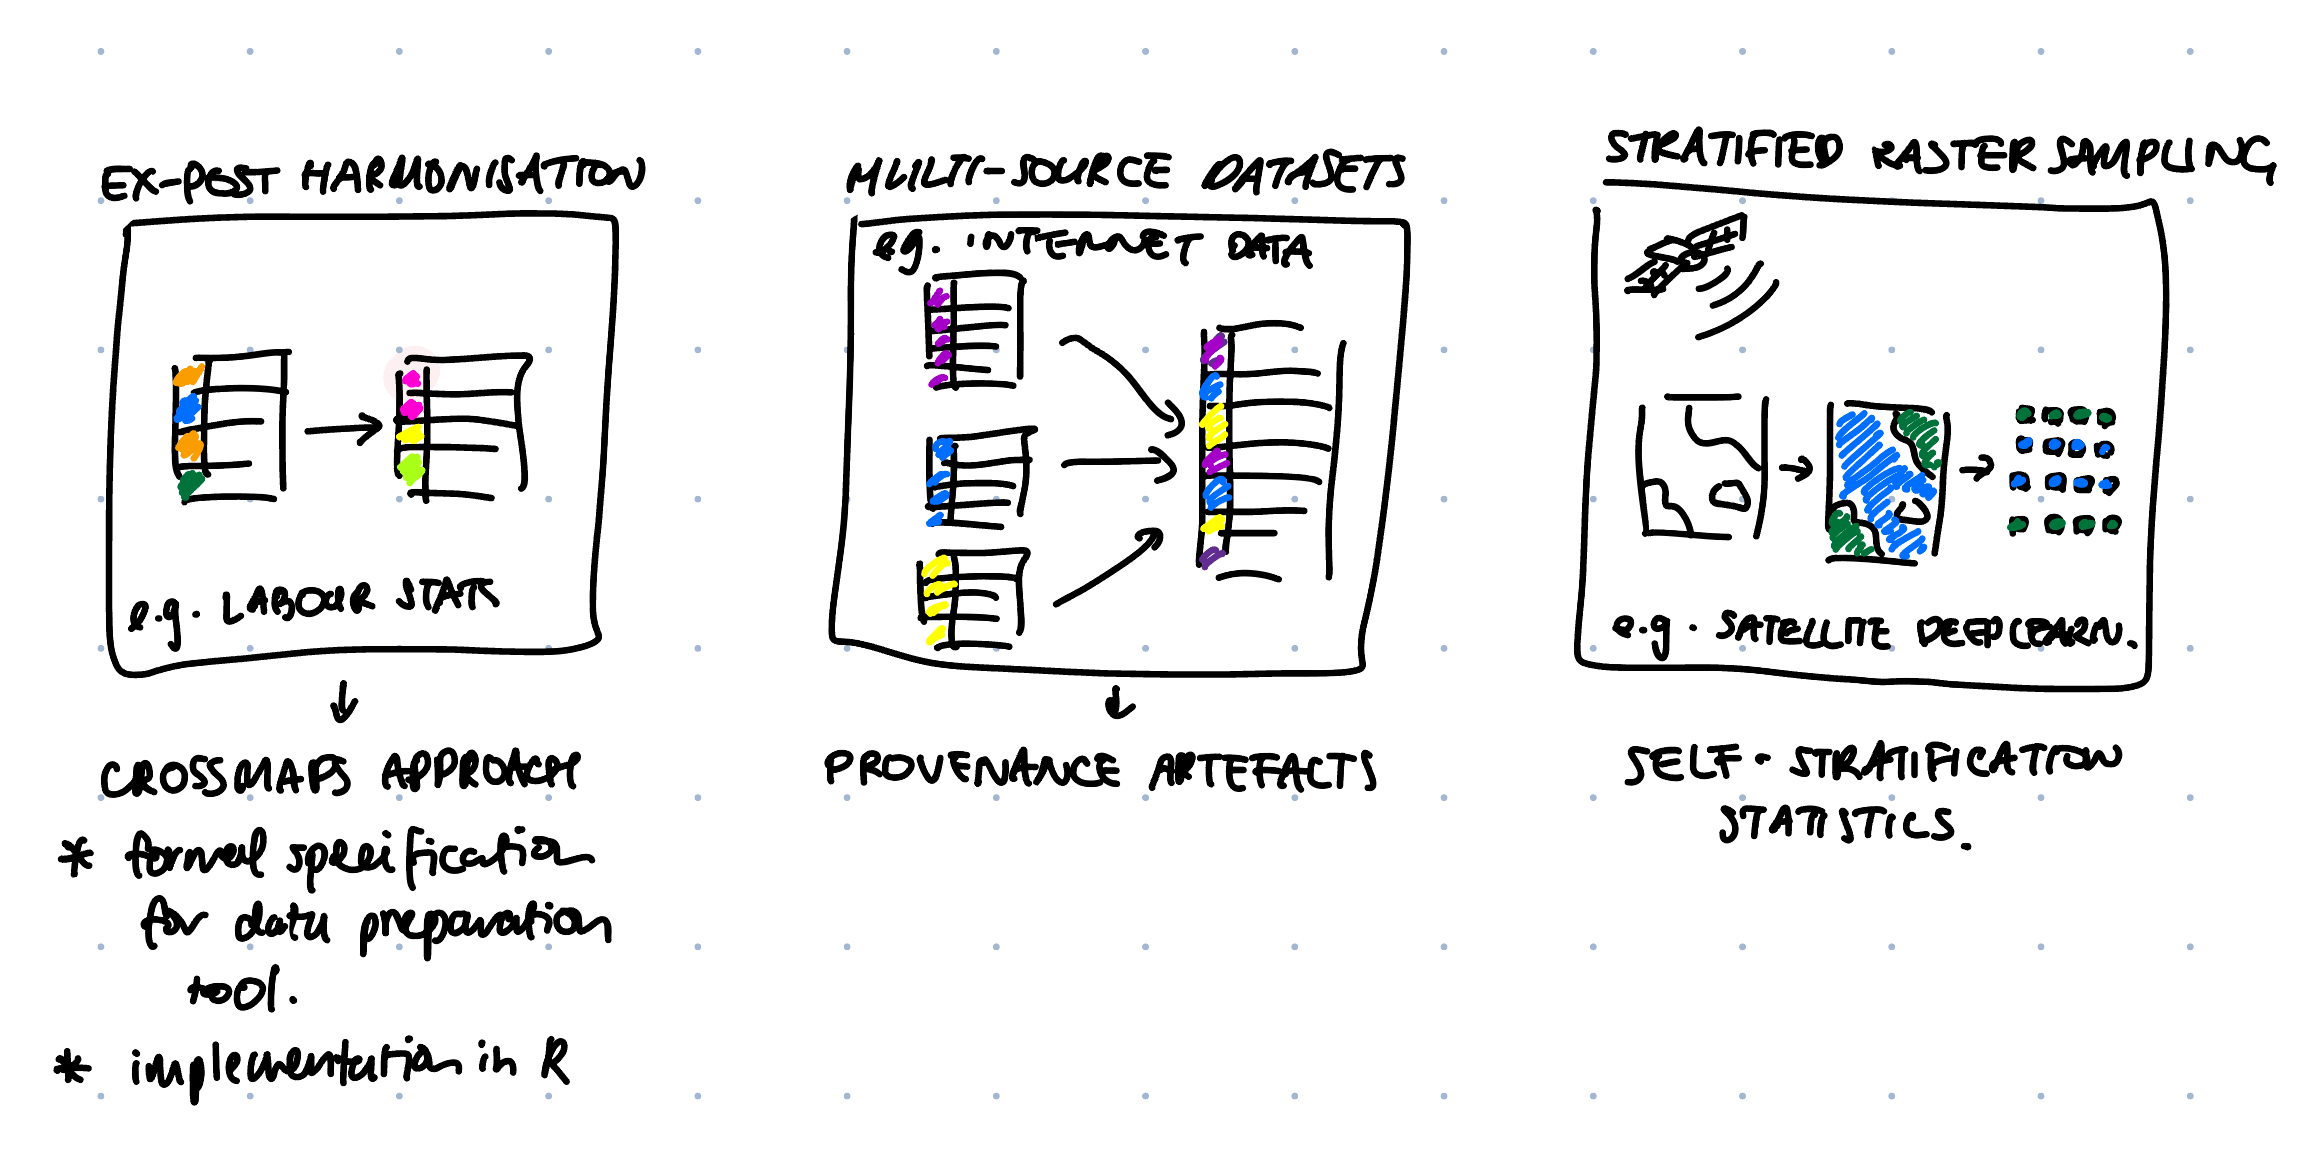 EX-POST HARMONISATION
e.g. LABOUR STATS
CROSSMAPS APPROACH
* formal specification
for data preparation
tool.
* implementation in R
MULTI-SOURCE DATASETS
e.g. INTERNET DATA
PROVENANCE ARTEFACTS
STRATIFIED RASTER SAMPLING
e.g. SATELLITE DEEPLEARN.
SELF-STRATIFICATION
STATISTICS.